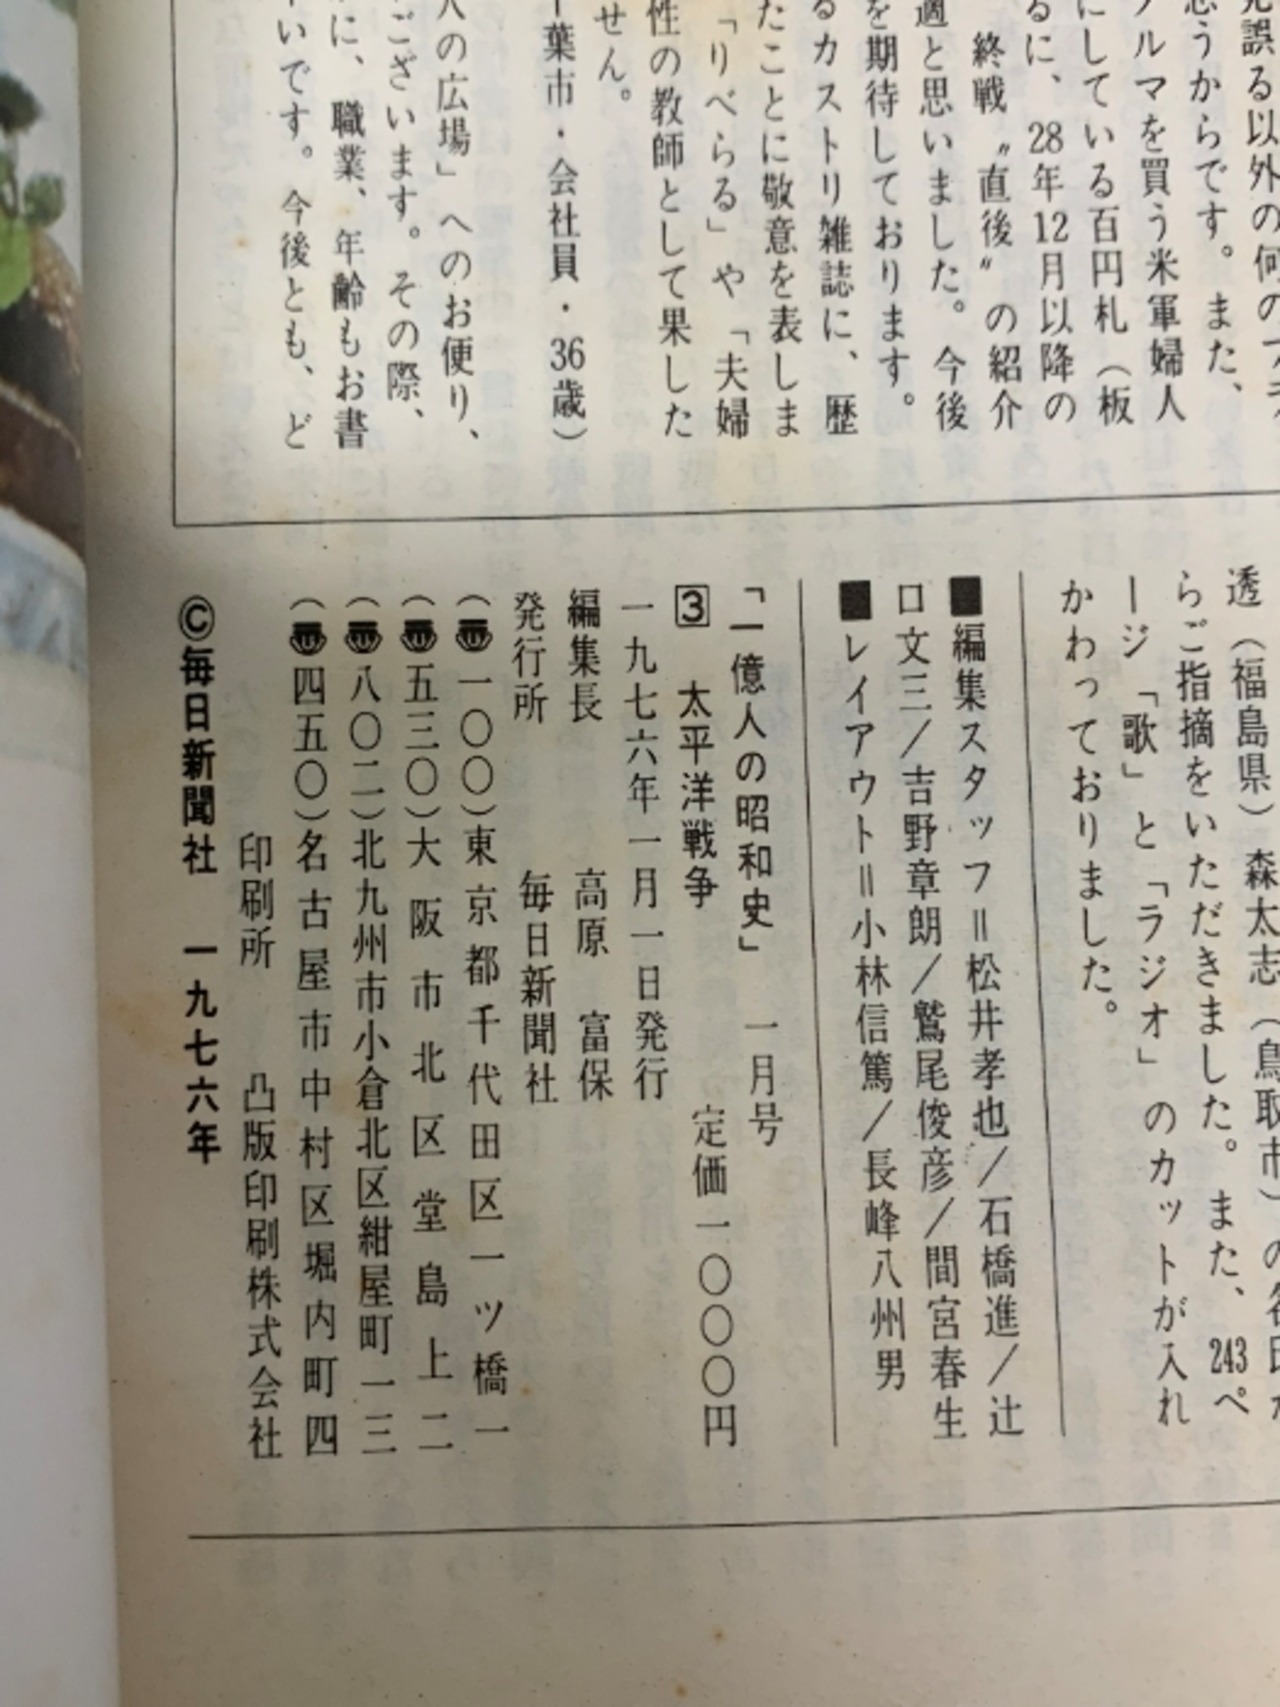 誤る以外の何の
思うからです。また、
ルマを買う米軍婦人
にしている百円札（板
るに、28年12月以降の
終戦〝直後〟の紹介
適と思いました。今後
を期待しております。
るカストリ雑誌に、歴
たことに敬意を表しま
「りべらる」や「夫婦
性の教師として果した
せん。
葉市・会社員・36歳）
人の広場」へのお便り、
ございます。その際、
に、職業、年齢もお書
いです。今後とも、ど
透（福島県）森太志（鳥取市）の
らご指摘をいただきました。また、243ペ
ージ「歌」と「ラジオ」のカットが入れ
かわっておりました。
■編集スタッフ＝松井孝也／石橋進／辻
口文三／吉野章朗／鷲尾俊彦／間宮春生
■レイアウト＝小林信篤／長峰八州男
「一億人の昭和史」 一月号
3 太平洋戦争 定価一〇〇〇円
一九七六年一月一日発行
編集長 高原 富保
発行所 毎日新聞社
（〠一〇〇）東京都千代田区一ツ橋一
（〠五三〇）大阪市北区堂島上二
（〠八〇二）北九州市小倉北区紺屋町一三
（〠四五〇）名古屋市中村区堀内町四
印刷所 凸版印刷株式会社
©毎日新聞社 一九七六年